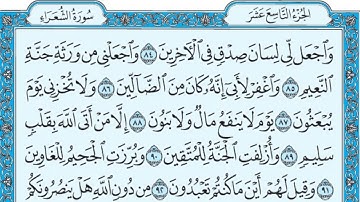 الجزء التاسع عشر سورة الشعراء
وَٱجۡعَل لِّي لِسَانَ صِدۡقٖ فِي ٱلۡأٓخِرِينَ ٨٤ وَٱجۡعَلۡنِي مِن وَرَثَةِ جَنَّةِ
ٱلنَّعِيمِ ٨٥ وَٱغۡفِرۡ لِأَبِيٓ إِنَّهُۥ كَانَ مِنَ ٱلضَّآلِّينَ ٨٦ وَلَا تُخۡزِنِي يَوۡمَ
يُبۡعَثُونَ ٨٧ يَوۡمَ لَا يَنفَعُ مَالٞ وَلَا بَنُونَ ٨٨ إِلَّا مَنۡ أَتَى ٱللَّهَ بِقَلۡبٖ
سَلِيمٖ ٨٩ وَأُزۡلِفَتِ ٱلۡجَنَّةُ لِلۡمُتَّقِينَ ٩٠ وَبُرِّزَتِ ٱلۡجَحِيمُ لِلۡغَاوِينَ
٩١ وَقِيلَ لَهُمۡ أَيۡنَ مَا كُنتُمۡ تَعۡبُدُونَ ٩٢ مِن دُونِ ٱللَّهِ هَلۡ يَنصُرُونَكُمۡ